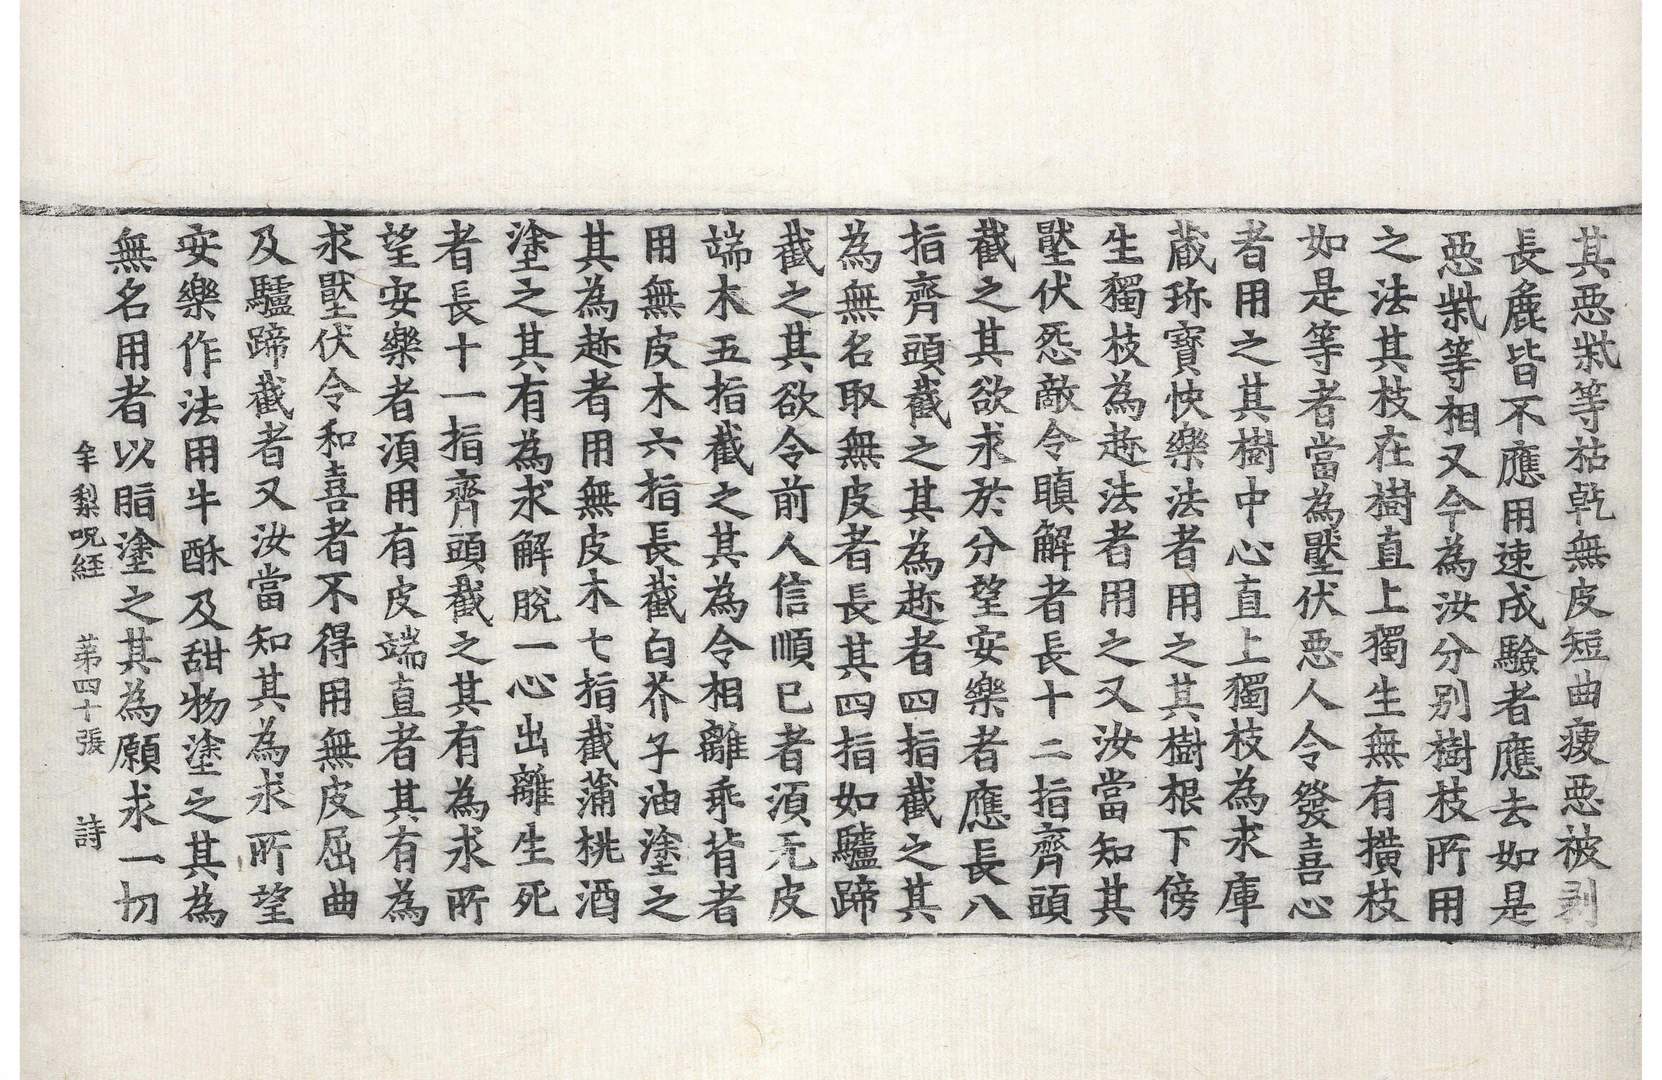 其惡柴等祜乾無皮短曲瘦惡被剥
長麁皆不應用速成驗者應去如是
惡柴等相又今為汝分别樹枝所用
之法其枝在樹直上獨生無有撗枝
如是等者當為壓伏惡人令發喜心
者用之其樹中心直上獨枝為求庫
蔵珎寶快樂法者用之其樹根下傍
生獨枝為趂法者用之又汝當知其
壓伏怨敵令瞋解者長十二指齊頭
截之其欲求於分望安樂者應長八
指齊頭截之其為趂者四指截之其
為無名取無皮者長其四指如驢蹄
截之其欲令前人信順已者湏无皮
端木五指截之其為令相離乖背者
用無皮木六指長截白芥子油塗之
其為趂者用無皮木七指截蒲桃酒
塗之其有為求解脫一心出離生死
者長十一指齊頭截之其有為求所
望安樂者湏用有皮端直者其有為
求壓伏令和喜者不得用無皮屈曲
及驢蹄截者又汝當知其為求所望
安樂作法用牛酥及甜物塗之其為
無名用者以脂塗之其為願求一切
牟梨呪経 苐四十張 詩